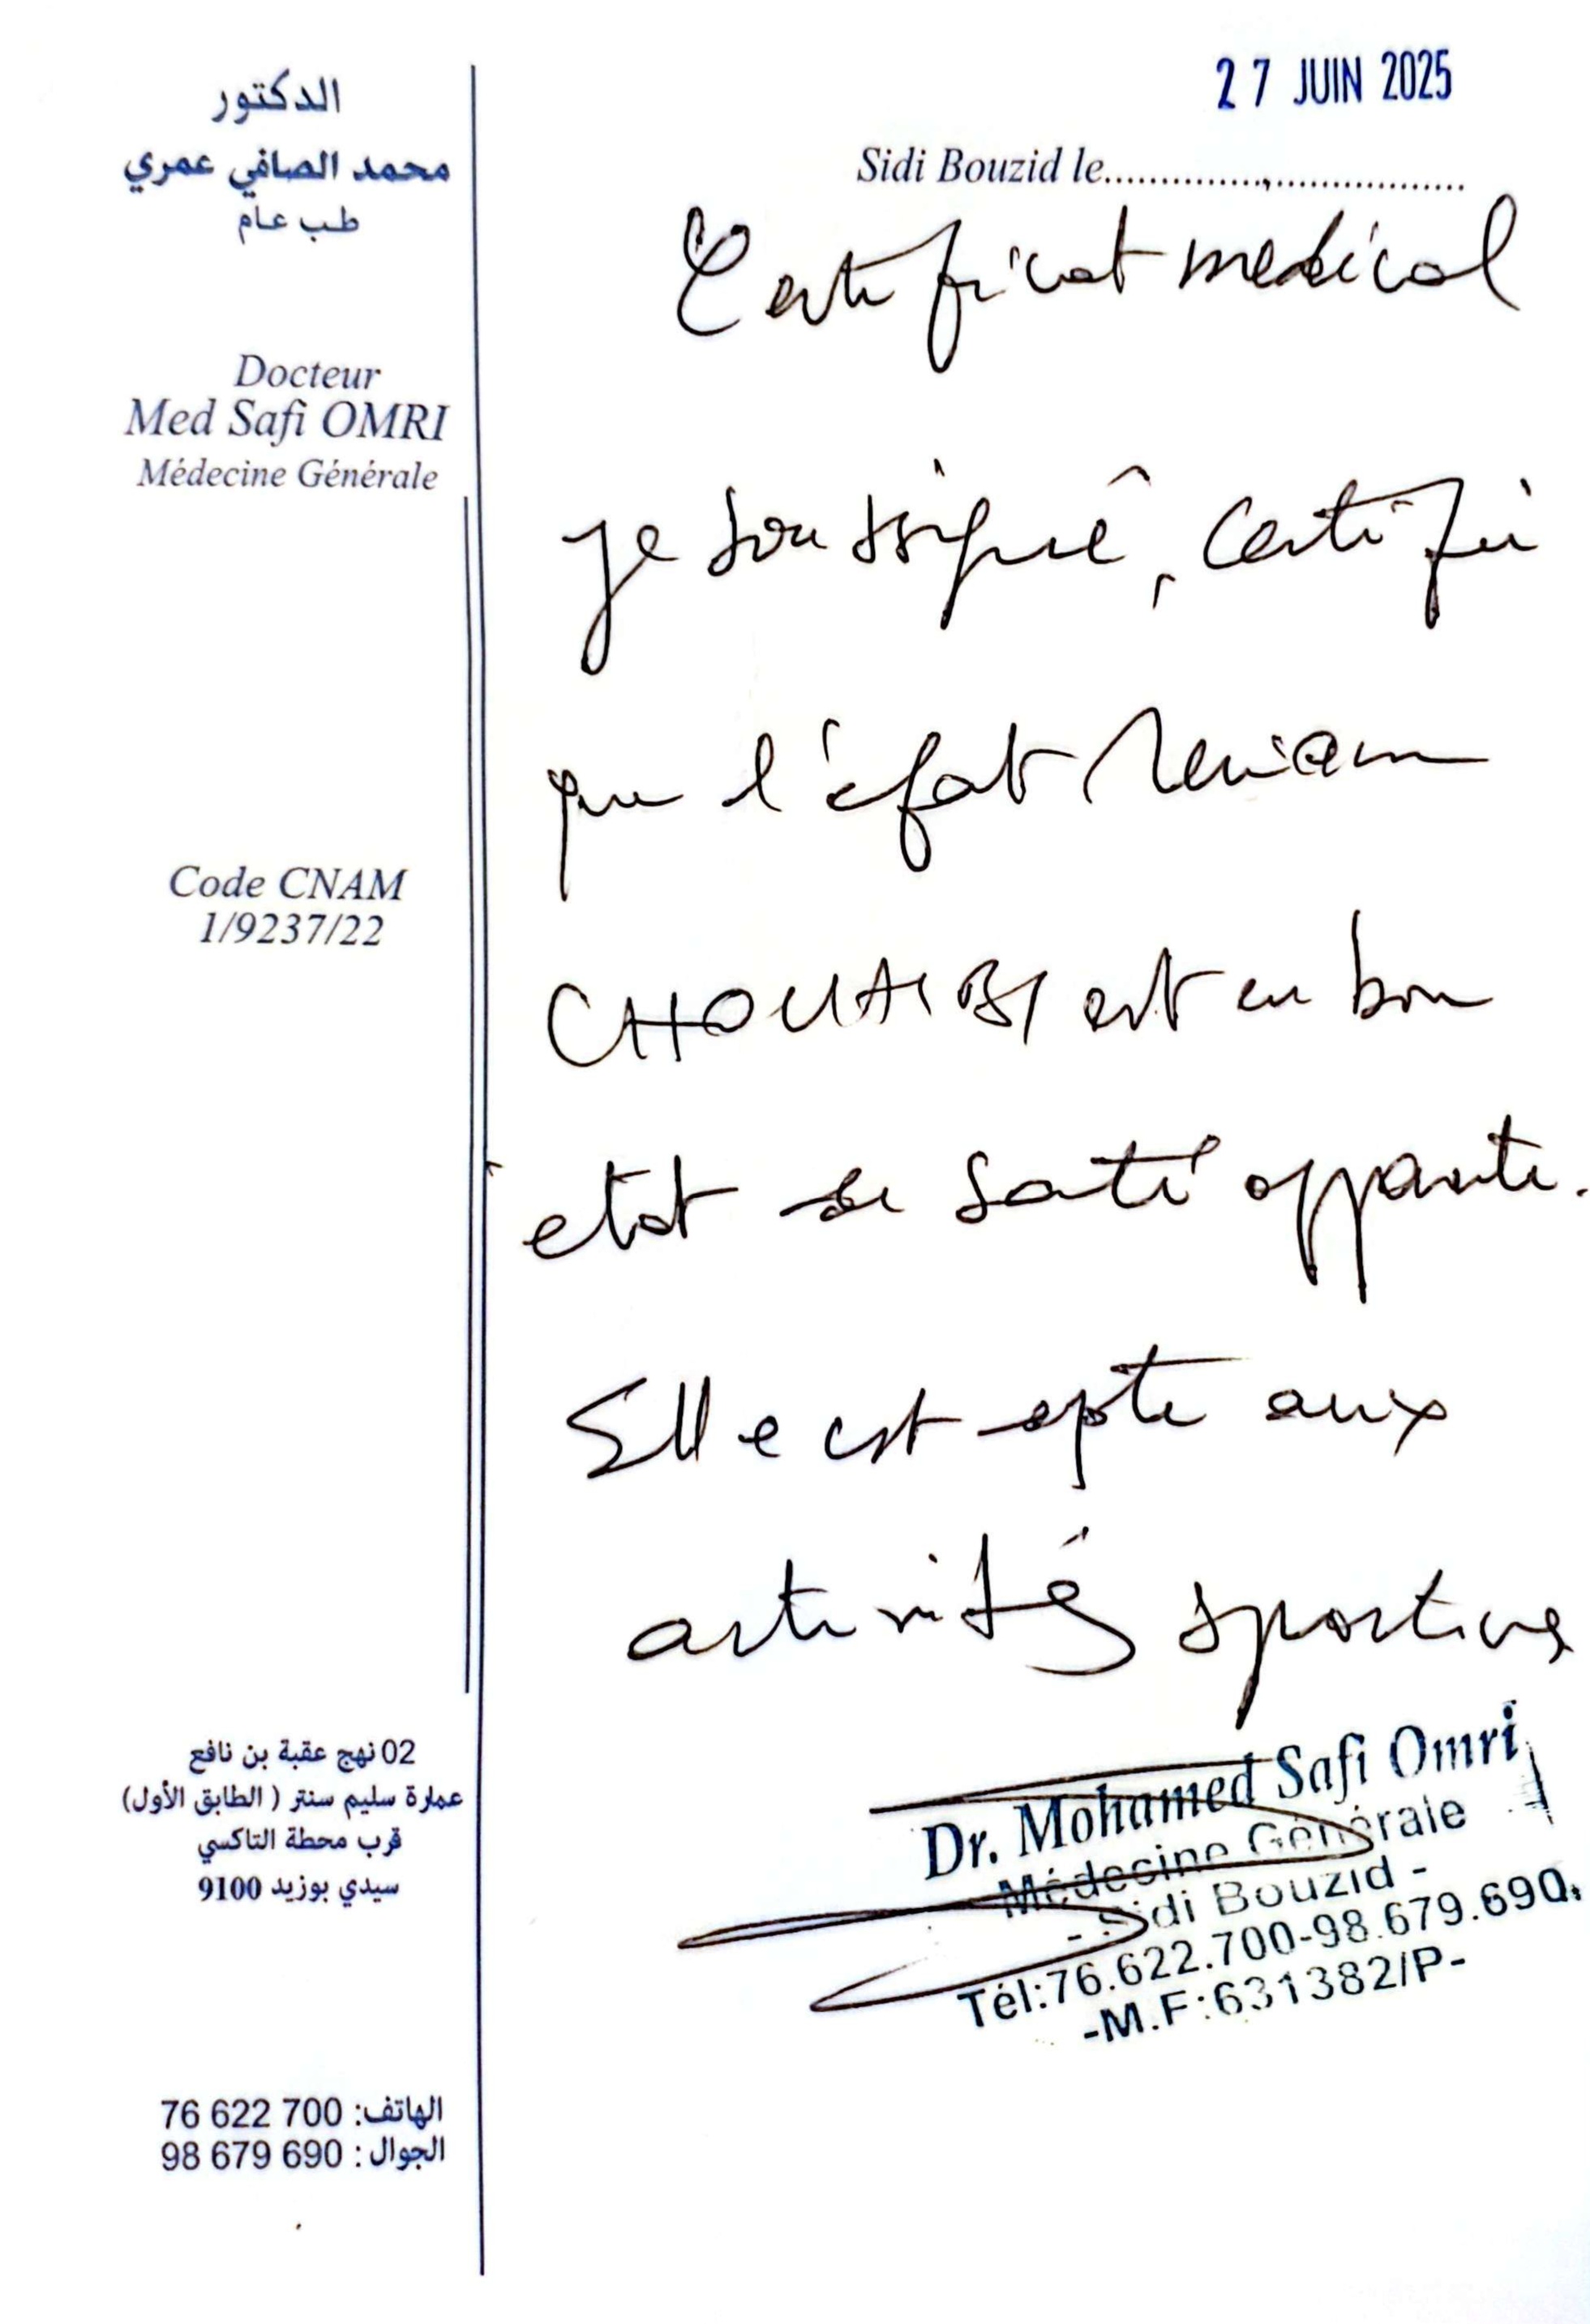 الدكتور
محمد الصافي عمري
طب عام
Docteur
Med Safi OMRI
Médecine Générale
Code CNAM
1/9237/22
02 نهج عقبة بن نافع
عمارة سليم سنتر ( الطابق الأول)
قرب محطة التاكسي
سيدي بوزيد 9100
الهاتف: 76 622 700
الجوال : 98 679 690
27 JUIN 2025
Sidi Bouzid le
Certificat medical
Je soussigné, certifie
que l'efat
CHOUAIBI est en bon
etat de santé apparente.
Elle est apte aux
activités sportives
Dr. Mohamed Safi Omri
Médecine Générale
- Sidi Bouzid -
Tél:76.622.700-98.679.690.
-M.F:631382/P-